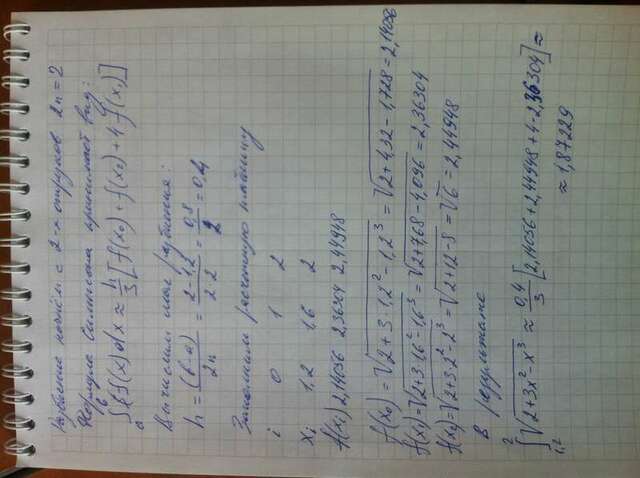 Разбиение начнём с 2-х отрезков 2n = 2
Формула Симпсона принимает вид:
∫ₐᵇ f(x) dx ≈ h/3 [f(x₀) + f(x₂) + 4 f(x₁)]
Вычислим шаг разбиения:
h = (b-a)/2n = 2-1,2/2·2 = 0,8/2 = 0,4
Заполним расчетную таблицу
i 0 1 2
xᵢ 1,2 1,6 2
f(xᵢ) 2,14056 2,36304 2,44948
f(x₀) = √(2+3·1,2²-1,2³) = √(2+4,32-1,728) = 2,14056
f(x₁) = √(2+3·1,6²-1,6³) = √(2+7,68-4,096) = 2,36304
f(x₂) = √(2+3·2²-2³) = √(2+12-8) = √6 = 2,44948
В результате
∫₁,₂² √(2+3x²-x³) ≈ 0,4/3 [2,14056+2,44948+4·2,36304] ≈
≈ 1,87229